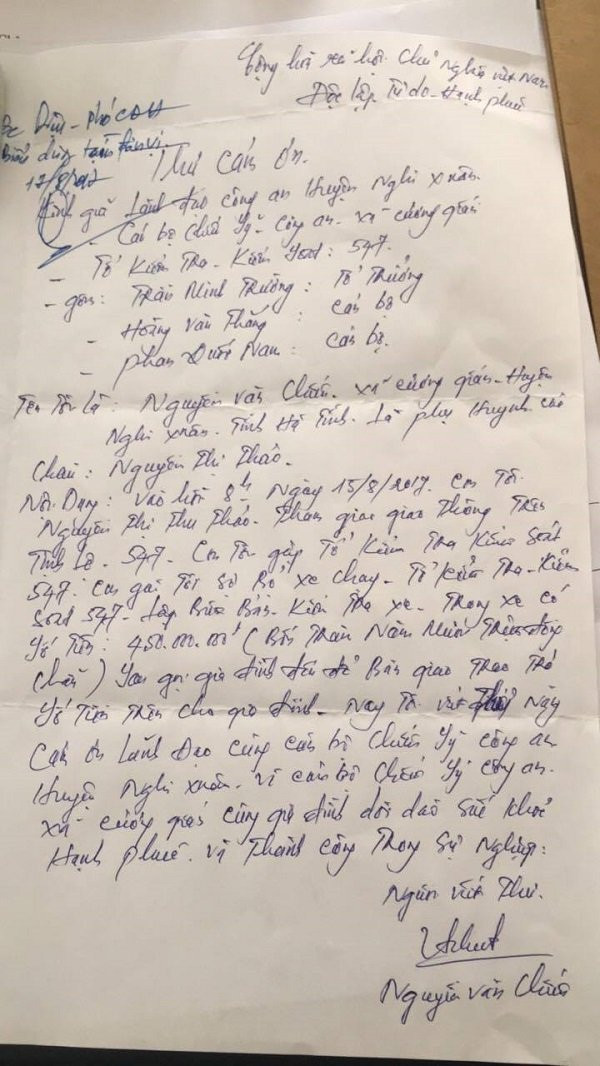 Cộng hoà xã hội Chủ Nghĩa việt Nam
Độc lập Tự do - Hạnh phúc
Đc Diệu - phó CAH
Biểu dương tại đơn vị.
17/8/2017
Thư Cảm Ơn.
Kính gửi Lãnh đạo công an Huyện Nghi xuân
- Cán bộ chiến sỹ - công an xã cương gián
- Tổ Kiểm Tra - Kiểm soát : 547.
- gồm : Trần Minh Trường : Tổ Trưởng
- Hoàng Văn Thắng : cán bộ
- phan Quốc Nam : cán bộ.
Tên Tôi là : Nguyễn văn Chiến. xã cương gián - Huyện
Nghi xuân - Tỉnh Hà Tĩnh. Là phụ Huynh của
Cháu : Nguyễn Thị Thảo.
Nội Dung : vào hồi 8h Ngày 15/8/2017. Con Tôi
Nguyễn Thị Thu Thảo. Tham gia giao thông Trên
Tỉnh Lộ - 547 - Con Tôi gặp Tổ Kiểm Tra Kiểm soát
547. Con gái Tôi sợ Bỏ xe chạy - Tổ kiểm Tra - Kiểm
soát 547 - Lập Biên Bản - Kiểm Tra xe - Trong xe có
số Tiền : 450.000.000đ ( Bốn Trăm Năm Mươi Triệu đồng
chẵn ) sau gọi gia đình đến để Bàn giao Trao Trả
số Tiền Trên cho gia đình - Nay Tôi viết Thư Này
Cảm ơn Lãnh Đạo cùng cán bộ chiến sỹ công an
Huyện Nghi xuân. và cán bộ chiến sỹ công an
xã cương gián cùng gia đình dồi dào sức khoẻ
Hạnh phúc. và Thành công Trong sự Nghiệp.
Người viết Thư.
Nguyễn văn Chiến